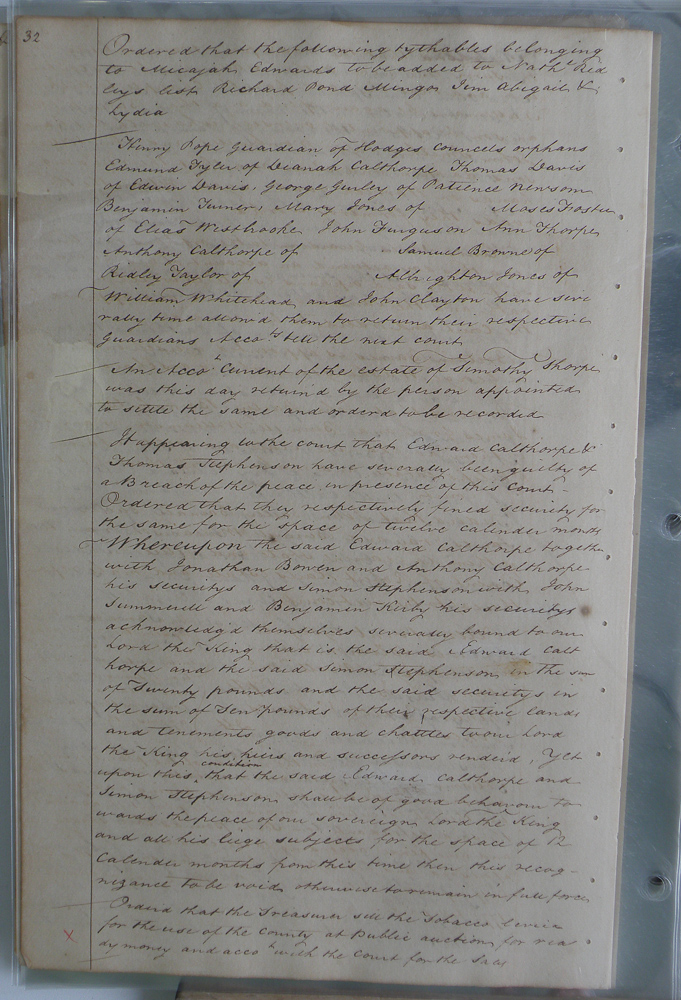 32
Ordered that the following tythables belonging
to Micajah Edwards to be added to Nathl Rid
leys list Richard Pond Mingo Jim Abigail &
Lydia
Henry Pope Guardian of Hodges Councels orphans
Edmund Tyler of Deanah Calthorpe Thomas Davis
of Edwin Davis, George Gurley of Patience Newsom
Benjamin Turner, Mary Jones of Moses Foster
of Elias Westbrooke John Furguson Ann Thorpe
Anthony Calthorpe of Samuel Browne of
Ridley Taylor of Albrighton Jones of
William Whitehead and John Clayton have seve
rally time allow'd them to return their respective
Guardians Accots till the next court
An Accot Current of the estate of Timothy Thorpe
was this day return'd by the person appointed
to settle the same and orderd to be recorded
It appearing to the court that Edward Calthorpe &
Thomas Stephenson have severally been guilty of
a Breach of the peace in presence of this Court -
Ordered that they respectively fined security for
the same for the space of twelve calender months
Whereupon the said Edward Calthorpe togethe
with Jonathan Bowen and Anthony Calthorpe
his securitys and Simon Stephenson with John
Summerell and Benjamin Kirby his securitys
acknowledg'd themselves severally bound to our
Lord the King that is the said Edward Calt
horpe and the said Simon Stephenson in the sum
of Twenty pounds and the said securitys in
the sum of Ten pounds of their respective lands
and tenements goods and chattles to our Lord
the King his heirs and successors renderd, Yet
upon this condition that the said Edward Calthorpe and
Simon Stephenson shall be of good behavour to
wards the peace of our sovereign Lord the King
and all his liege subjects for the space of 12
Calender months from this time then this recog-
nizance to be void otherwise to remain in full force
Orderd that the Treasurer sell the Tobacco levied
for the use of the County at Public auction for rea
dy money and accot with the Court for the Sales
X